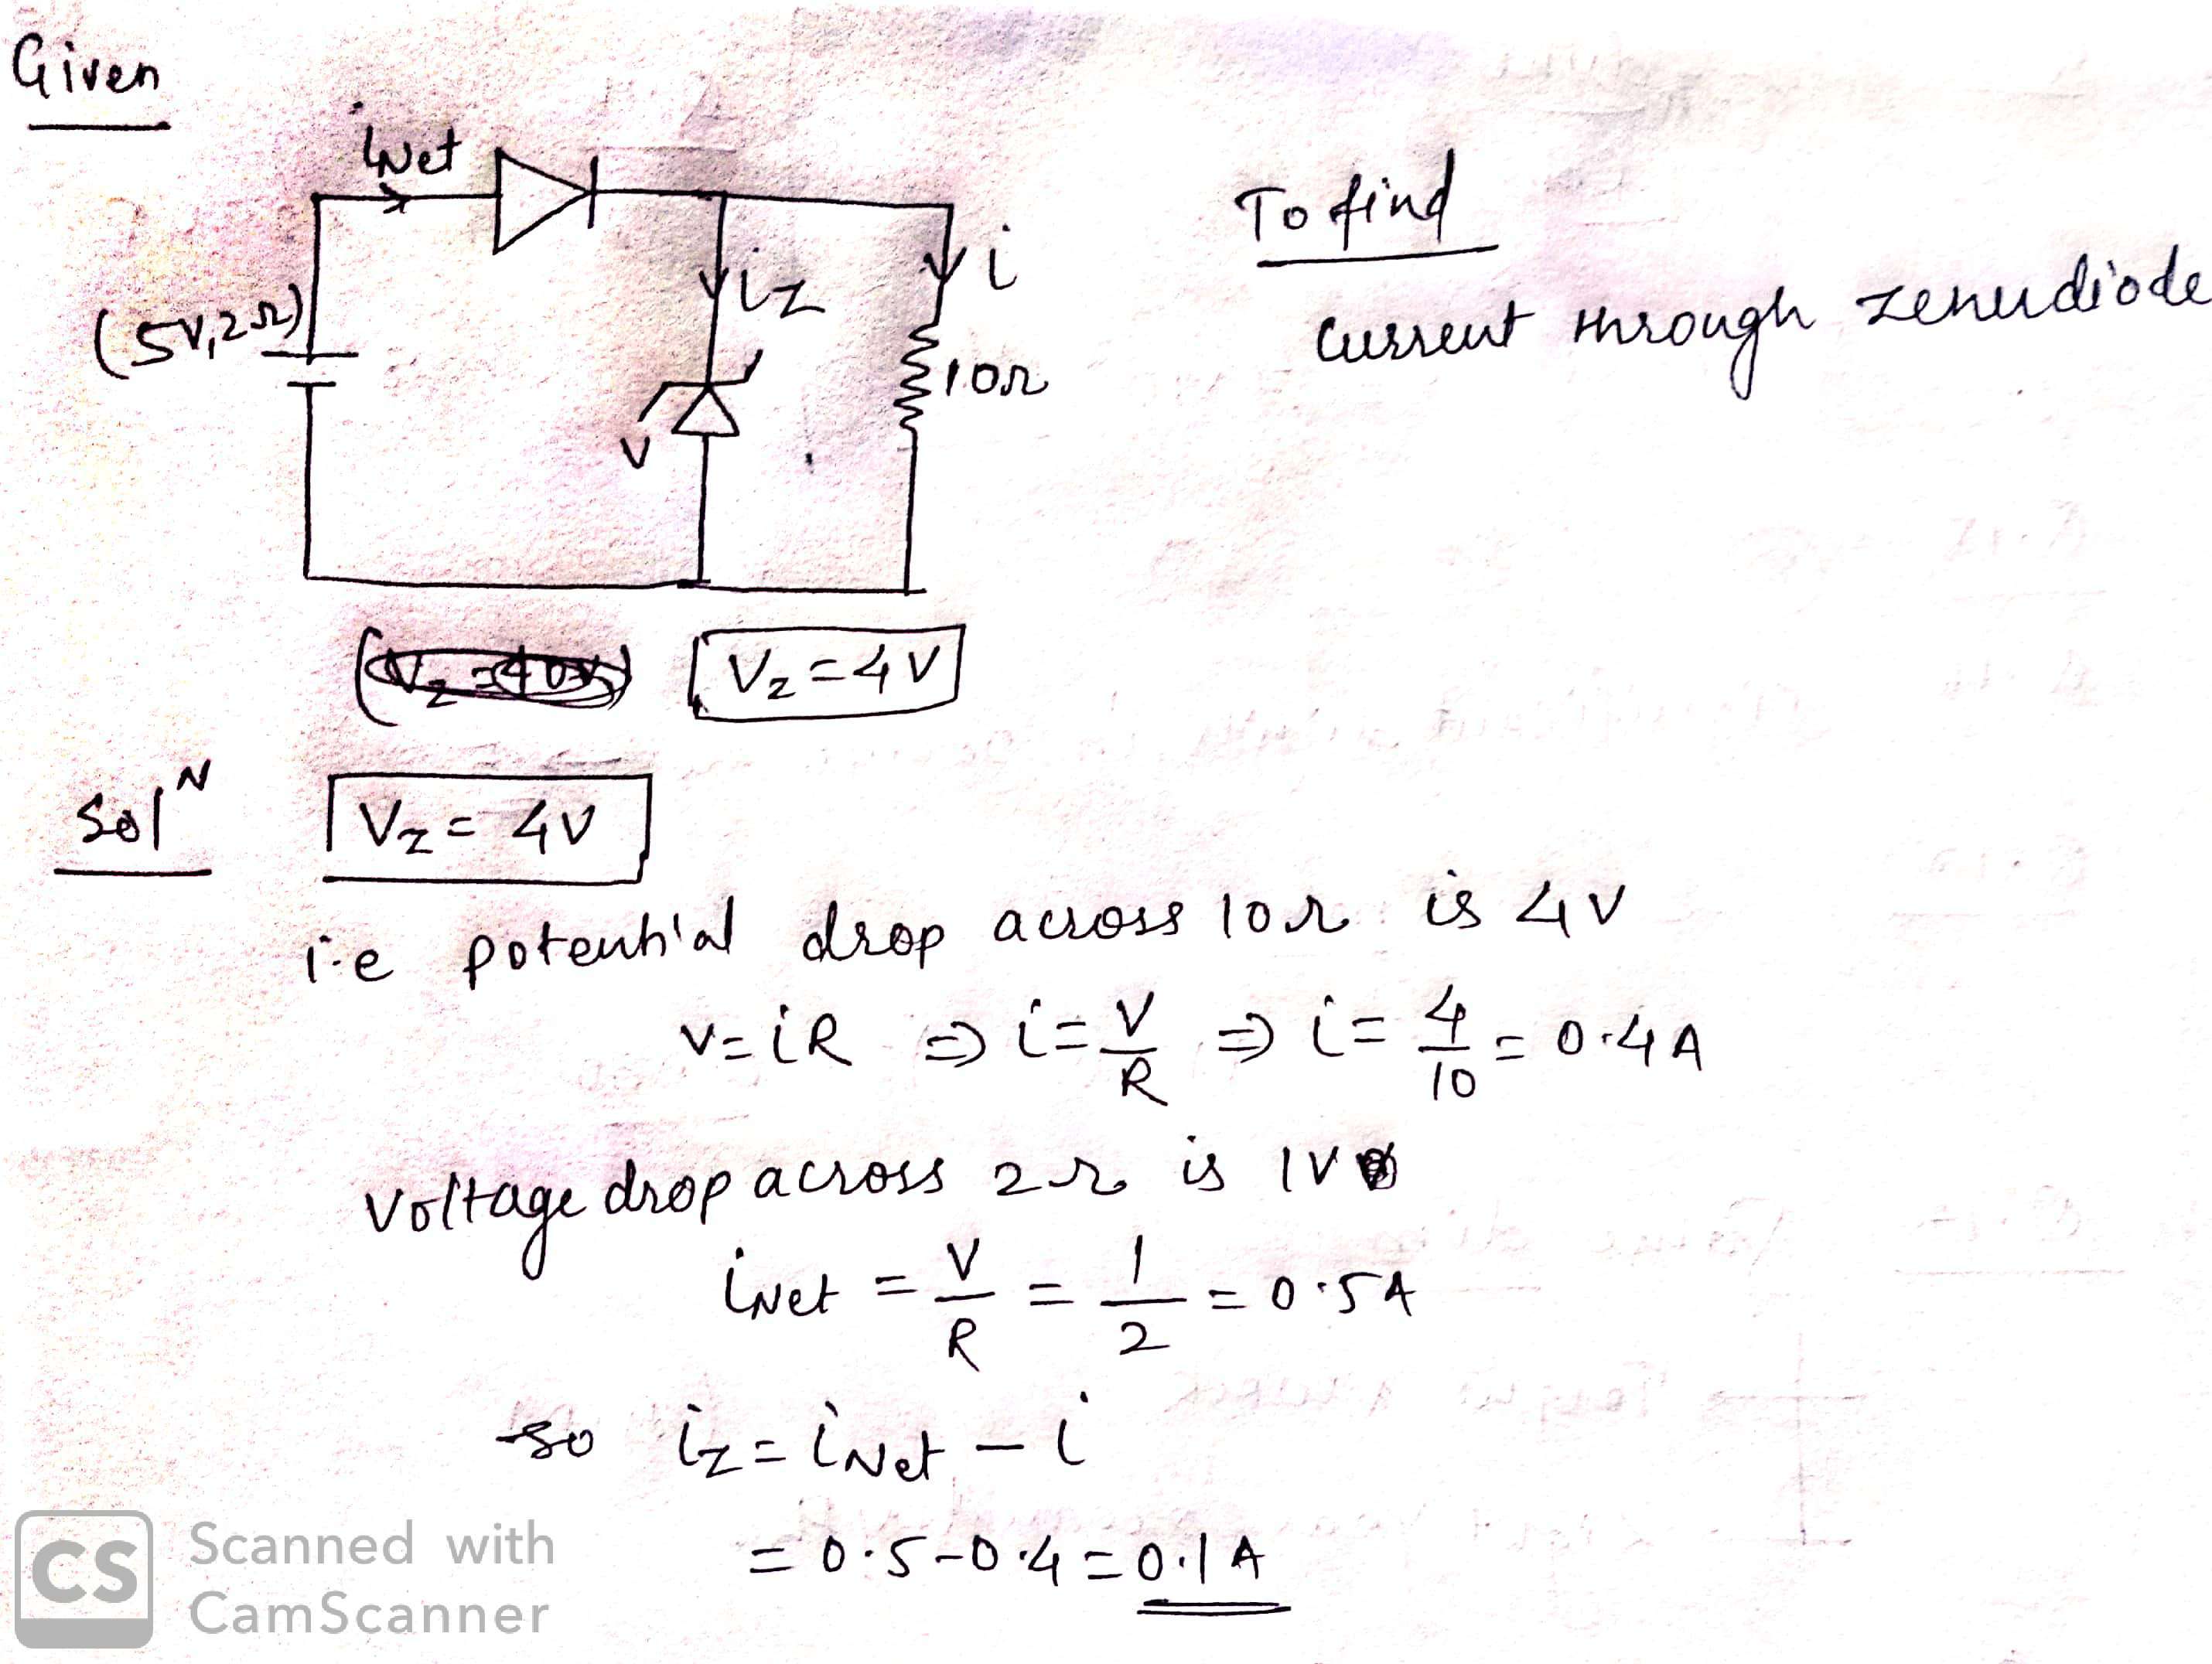 Given
iNet
(5V, 2Ω)
iz
i
10Ω
V
To find
Current through zenerdiode
Vz = 4V
Solᴺ
Vz = 4V
i.e potential drop across 10Ω is 4V
V = iR ⇒ i = V/R ⇒ i = 4/10 = 0.4A
Voltage drop across 2Ω is 1V
iNet = V/R = 1/2 = 0.5A
so iz = iNet - i
= 0.5-0.4 = 0.1A
CS Scanned with
CamScanner